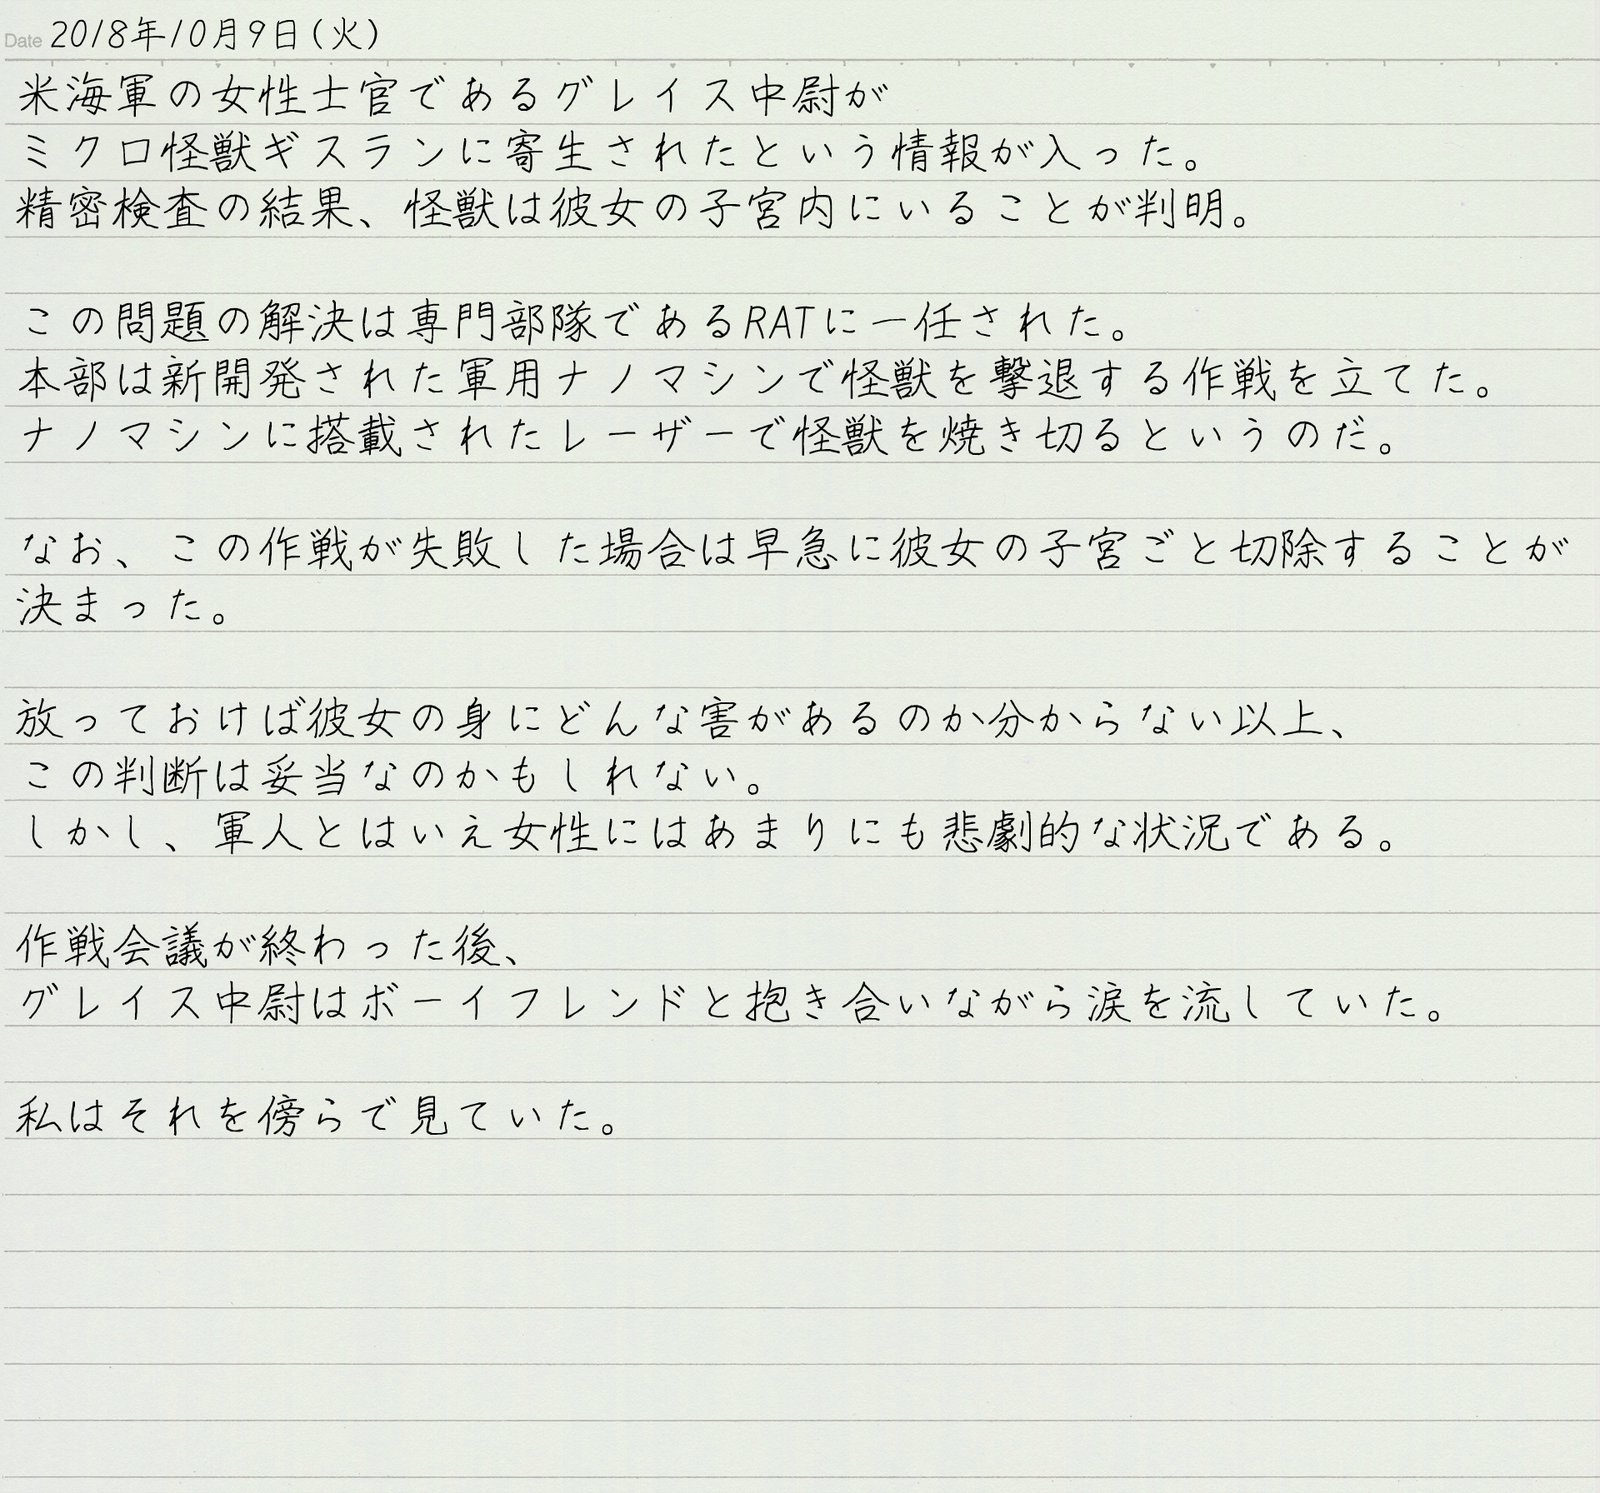 Date 2018年10月9日(火)
米海軍の女性士官であるグレイス中尉が
ミクロ怪獣ギスランに寄生されたという情報が入った。
精密検査の結果、怪獣は彼女の子宮内にいることが判明。
この問題の解決は専門部隊であるRATに一任された。
本部は新開発された軍用ナノマシンで怪獣を撃退する作戦を立てた。
ナノマシンに搭載されたレーザーで怪獣を焼き切るというのだ。
なお、この作戦が失敗した場合は早急に彼女の子宮ごと切除することが
決まった。
放っておけば彼女の身にどんな害があるのか分からない以上、
この判断は妥当なのかもしれない。
しかし、軍人とはいえ女性にはあまりにも悲劇的な状況である。
作戦会議が終わった後、
グレイス中尉はボーイフレンドと抱き合いながら涙を流していた。
私はそれを傍らで見ていた。